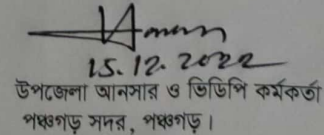 15.12.2022
উপজেলা আনসার ও ভিডিপি কর্মকর্তা
পঞ্চগড় সদর, পঞ্চগড়।